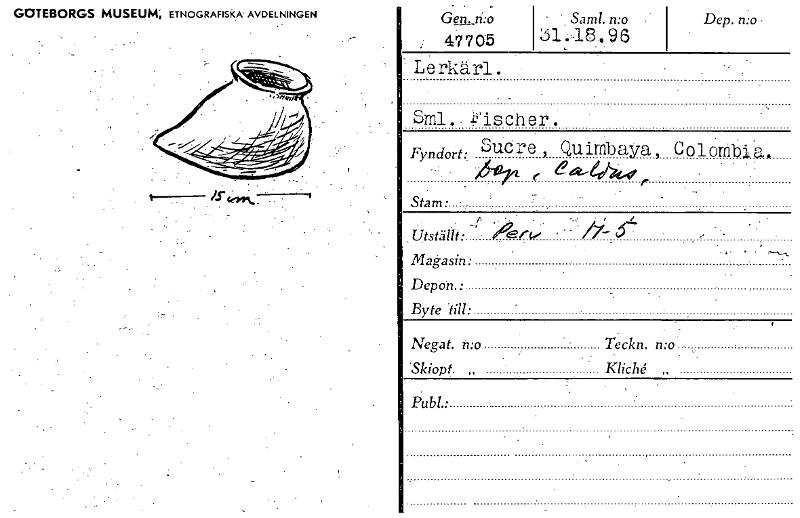 GÖTEBORGS MUSEUM, ETNOGRAFISKA AVDELNINGEN
15 cm
Gen. n:o Saml. n:o Dep. n:o
47705 31.18.96
Lerkärl.
Sml. Fischer.
Fyndort: Sucre, Quimbaya, Colombia.
Dep, Caldas,
Stam:
Utställt: Peru M-5
Magasin:
Depon.:
Byte till:
Negat. n:o Teckn. n:o
Skiopt. „ Kliché „
Publ.: